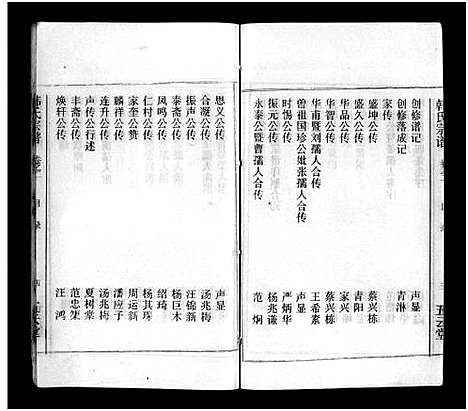 韩氏宗谱 目录 五云堂
创修谱记 声显
创修落成记 青淋
家传
盛坤公传 蔡兴栋
盛久公传 青阳
华品公传 家兴
华智公传 蔡兴栋
华甫暨刘孺人合传 王希素
曾祖国珍公妣张孺人合传 声显
时惕公传 严炳华
振元公传 杨兆谦
永泰公暨曹孺人合传 范炯
恩义公传 声显
合凝公传 汤兆梅
振声公传 汪锦新
泰斋公传 杨巨木
凤鸣公传 绍琦
仁村公传 杨其珠
家奎公赞 周运新
麟祥公传 潘应子
连升公传 汤兆梅
声传公行述 夏树棠
丰斋公传 范忠
焕轩公传 汪鸿
韩氏宗谱 目录